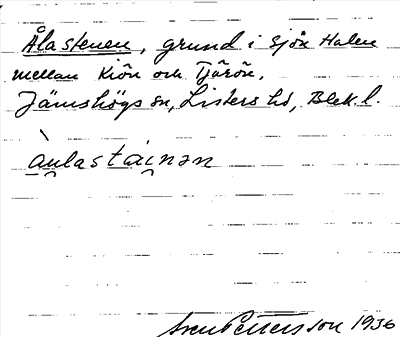 Ålastenen, grund i sjön Halen
mellan Kiön och Tjärön.
Jämshögs sn, Listers hd, Blek. l.
au̯lastai̯nən
Sven Pettersson 1936